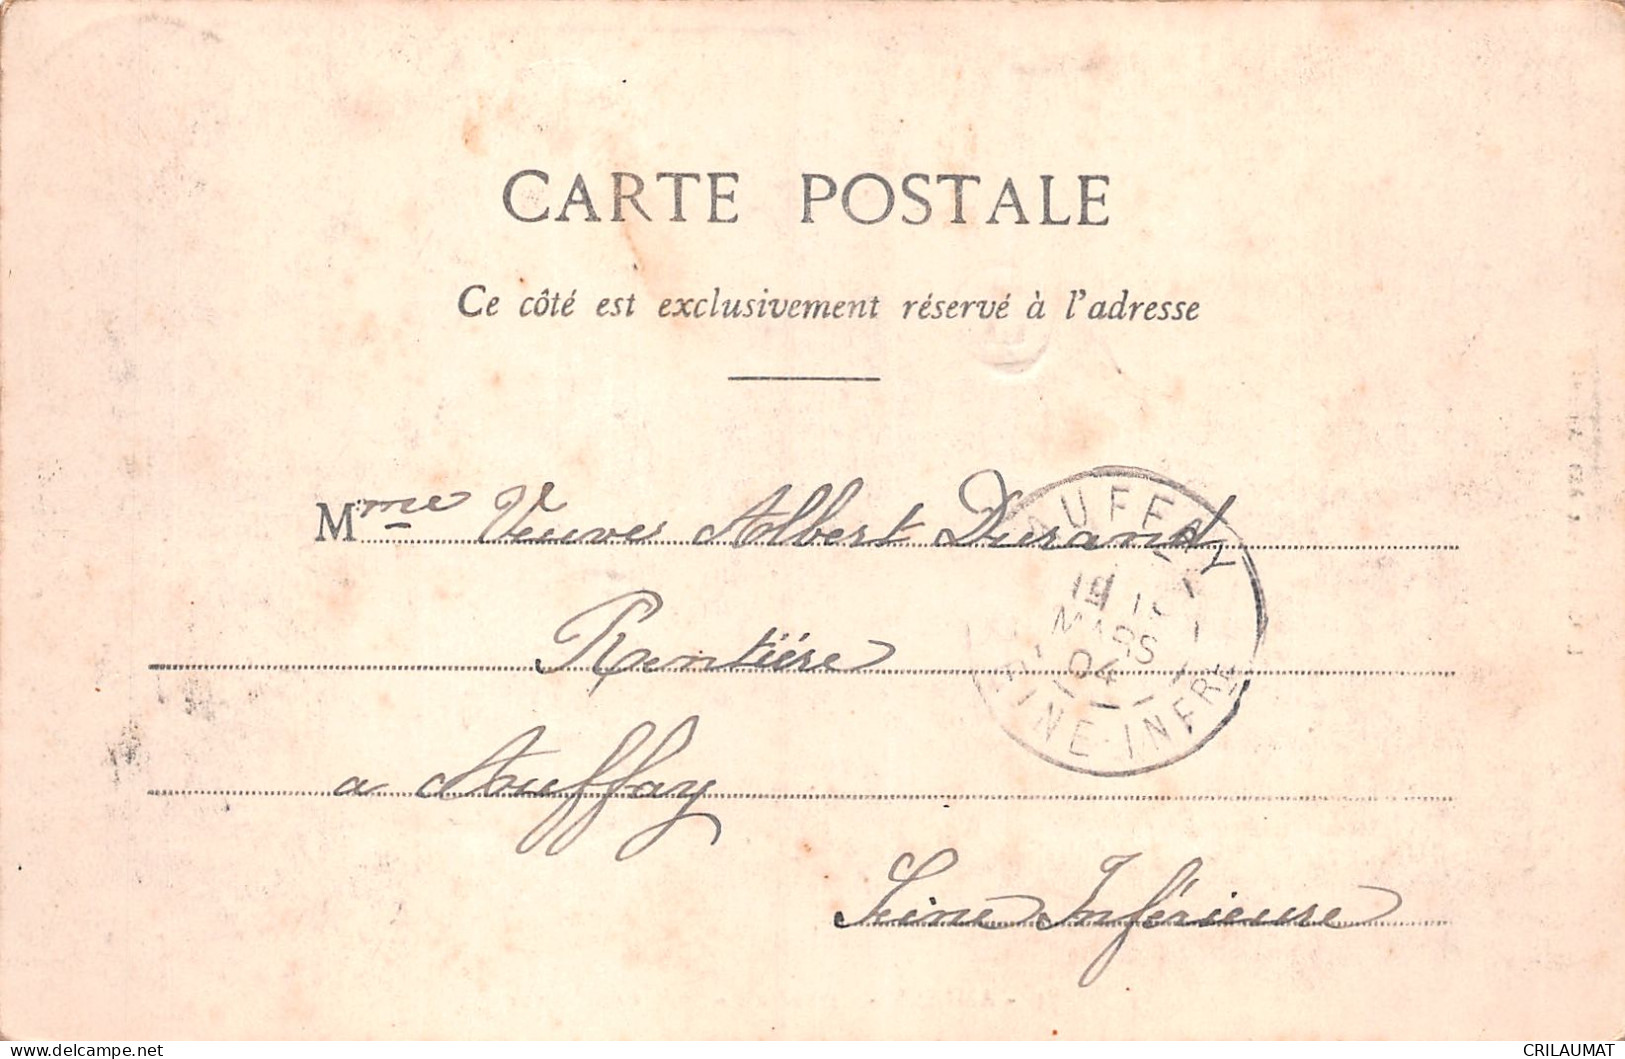 CARTE POSTALE
Ce côté est exclusivement réservé à l'adresse
Mme Veuve Albert Durand
Rentière
a Auffay
Seine Inférieure
AUFFAY
MARS
04
SEINE-INFRE
www.delcampe.net
CRILAUMAT